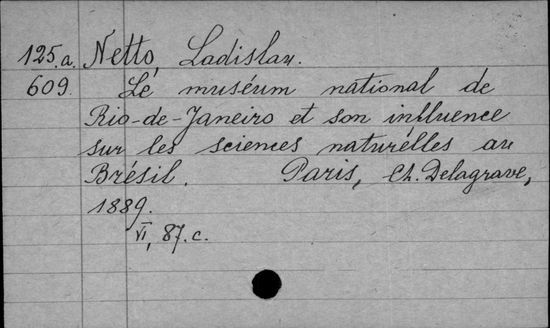 125.a. Netto, Ladislau.
609. Le muséum national de
Rio-de-Janeiro et son influence
sur les sciences naturelles au
Brésil. Paris, Ch. Delagrave,
1889.
VI, 87. c.